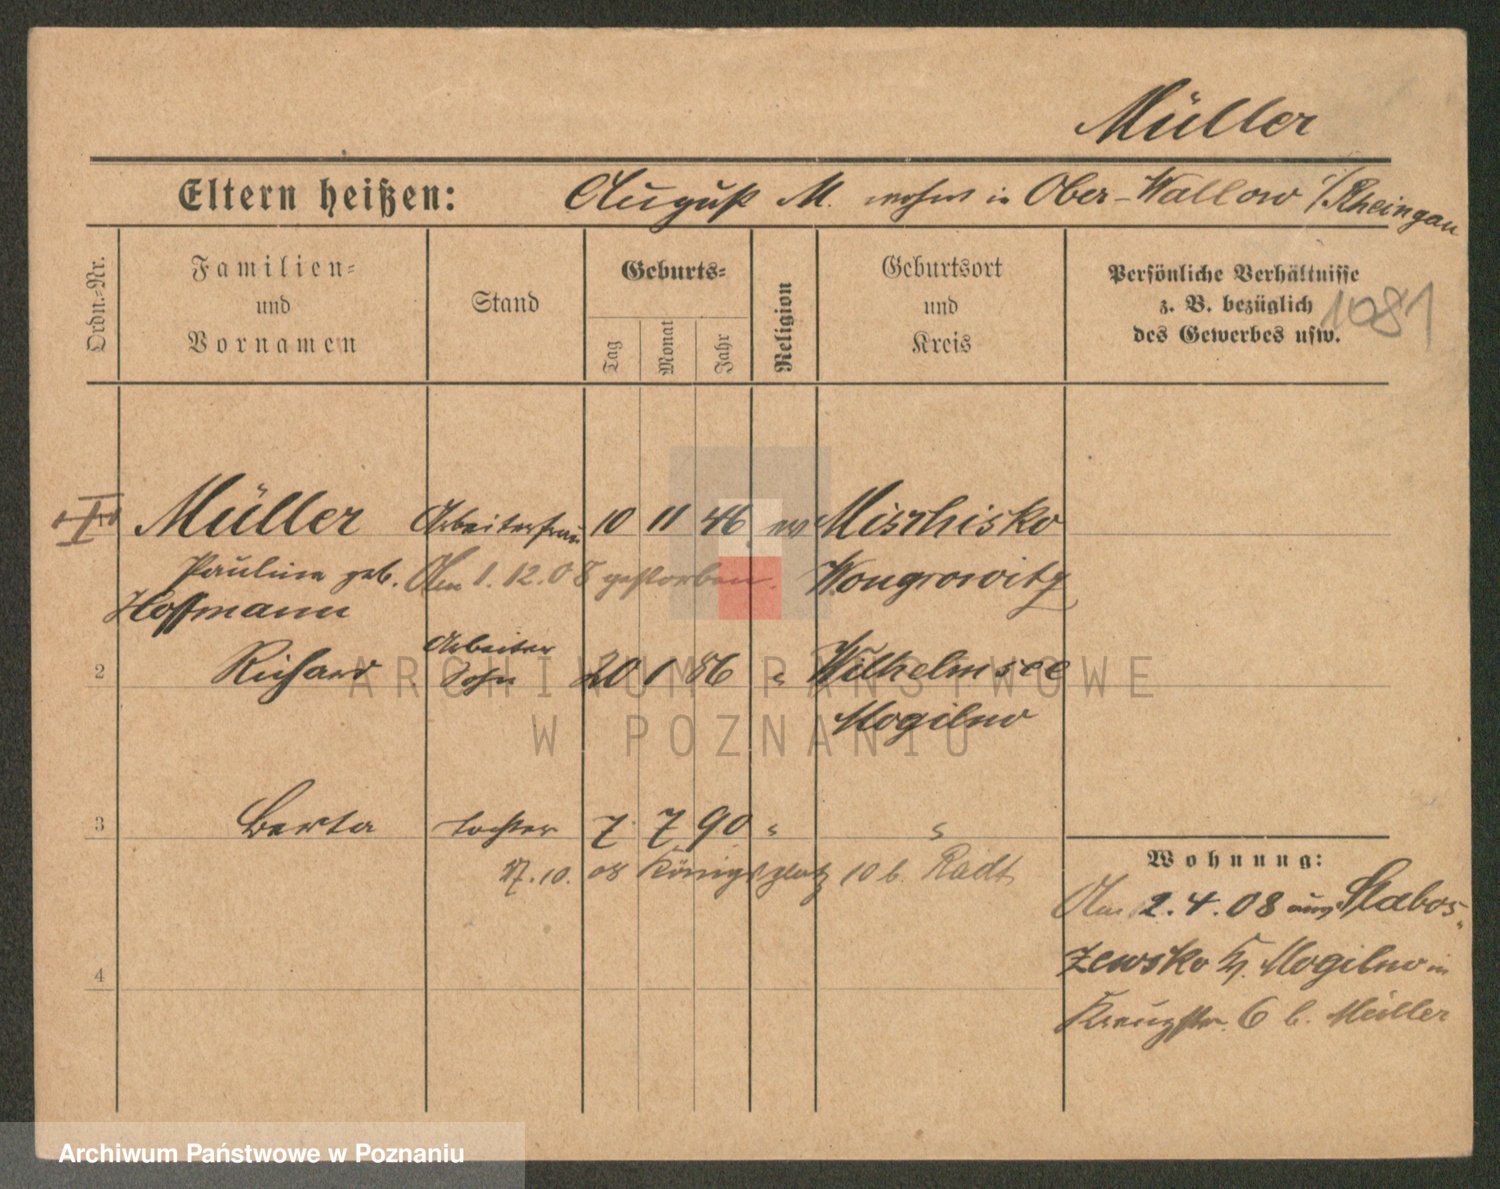 Müller
Eltern heißen: August M. wohnt in Ober-Wallow i/Rheingau
Ordn.-Nr.
Familien-
und
Vornamen
Stand
Geburts-
Tag
Monat
Jahr
Religion
Geburtsort
und
Kreis
Persönliche Verhältnisse
z. B. bezüglich
des Gewerbes usw.
1081
I Müller Arbeiterfrau 10 11 46 ev Mischisko
Pauline geb. Am 1.12.08 gestorben. Wongrowitz
Hoffmann
2 Richard Arbeiter 20 1 86 " Wilhelmsee
Sohn
Mogilno
3 Berta Tochter 7. 7 90 " "
17.10.08 Königsplatz 10 b. Radt
4
Wohnung:
Am 2.4.08 aus Slabos-
zewsko Kr. Mogilno in
Kreuzstr. 6 b. Müller
ARCHIWUM PAŃSTWOWE
W POZNANIU
Archiwum Państwowe w Poznaniu